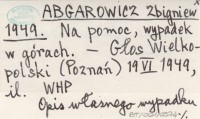 ABGAROWICZ Zbigniew
1949. Na pomoc, wypadek
w górach. — Głos Wielko-
polski (Poznań) 19 VI 1949,
il. WHP
Opis własnego wypadku